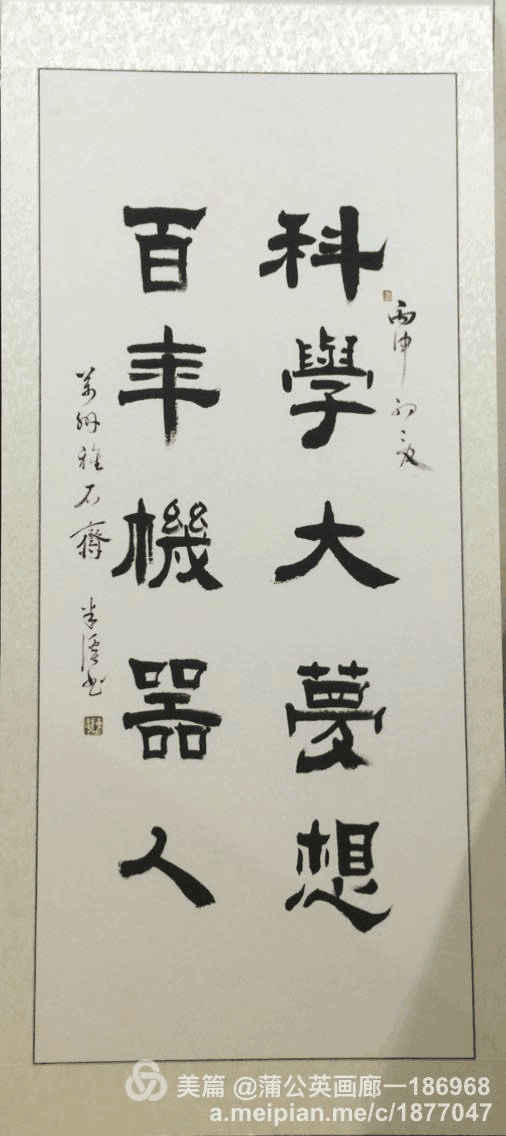 丙申初夏
科學大夢想
百年機器人
萬州雅石齋
美篇 @蒲公英画廊一186968
a.meipian.me/c/1877047